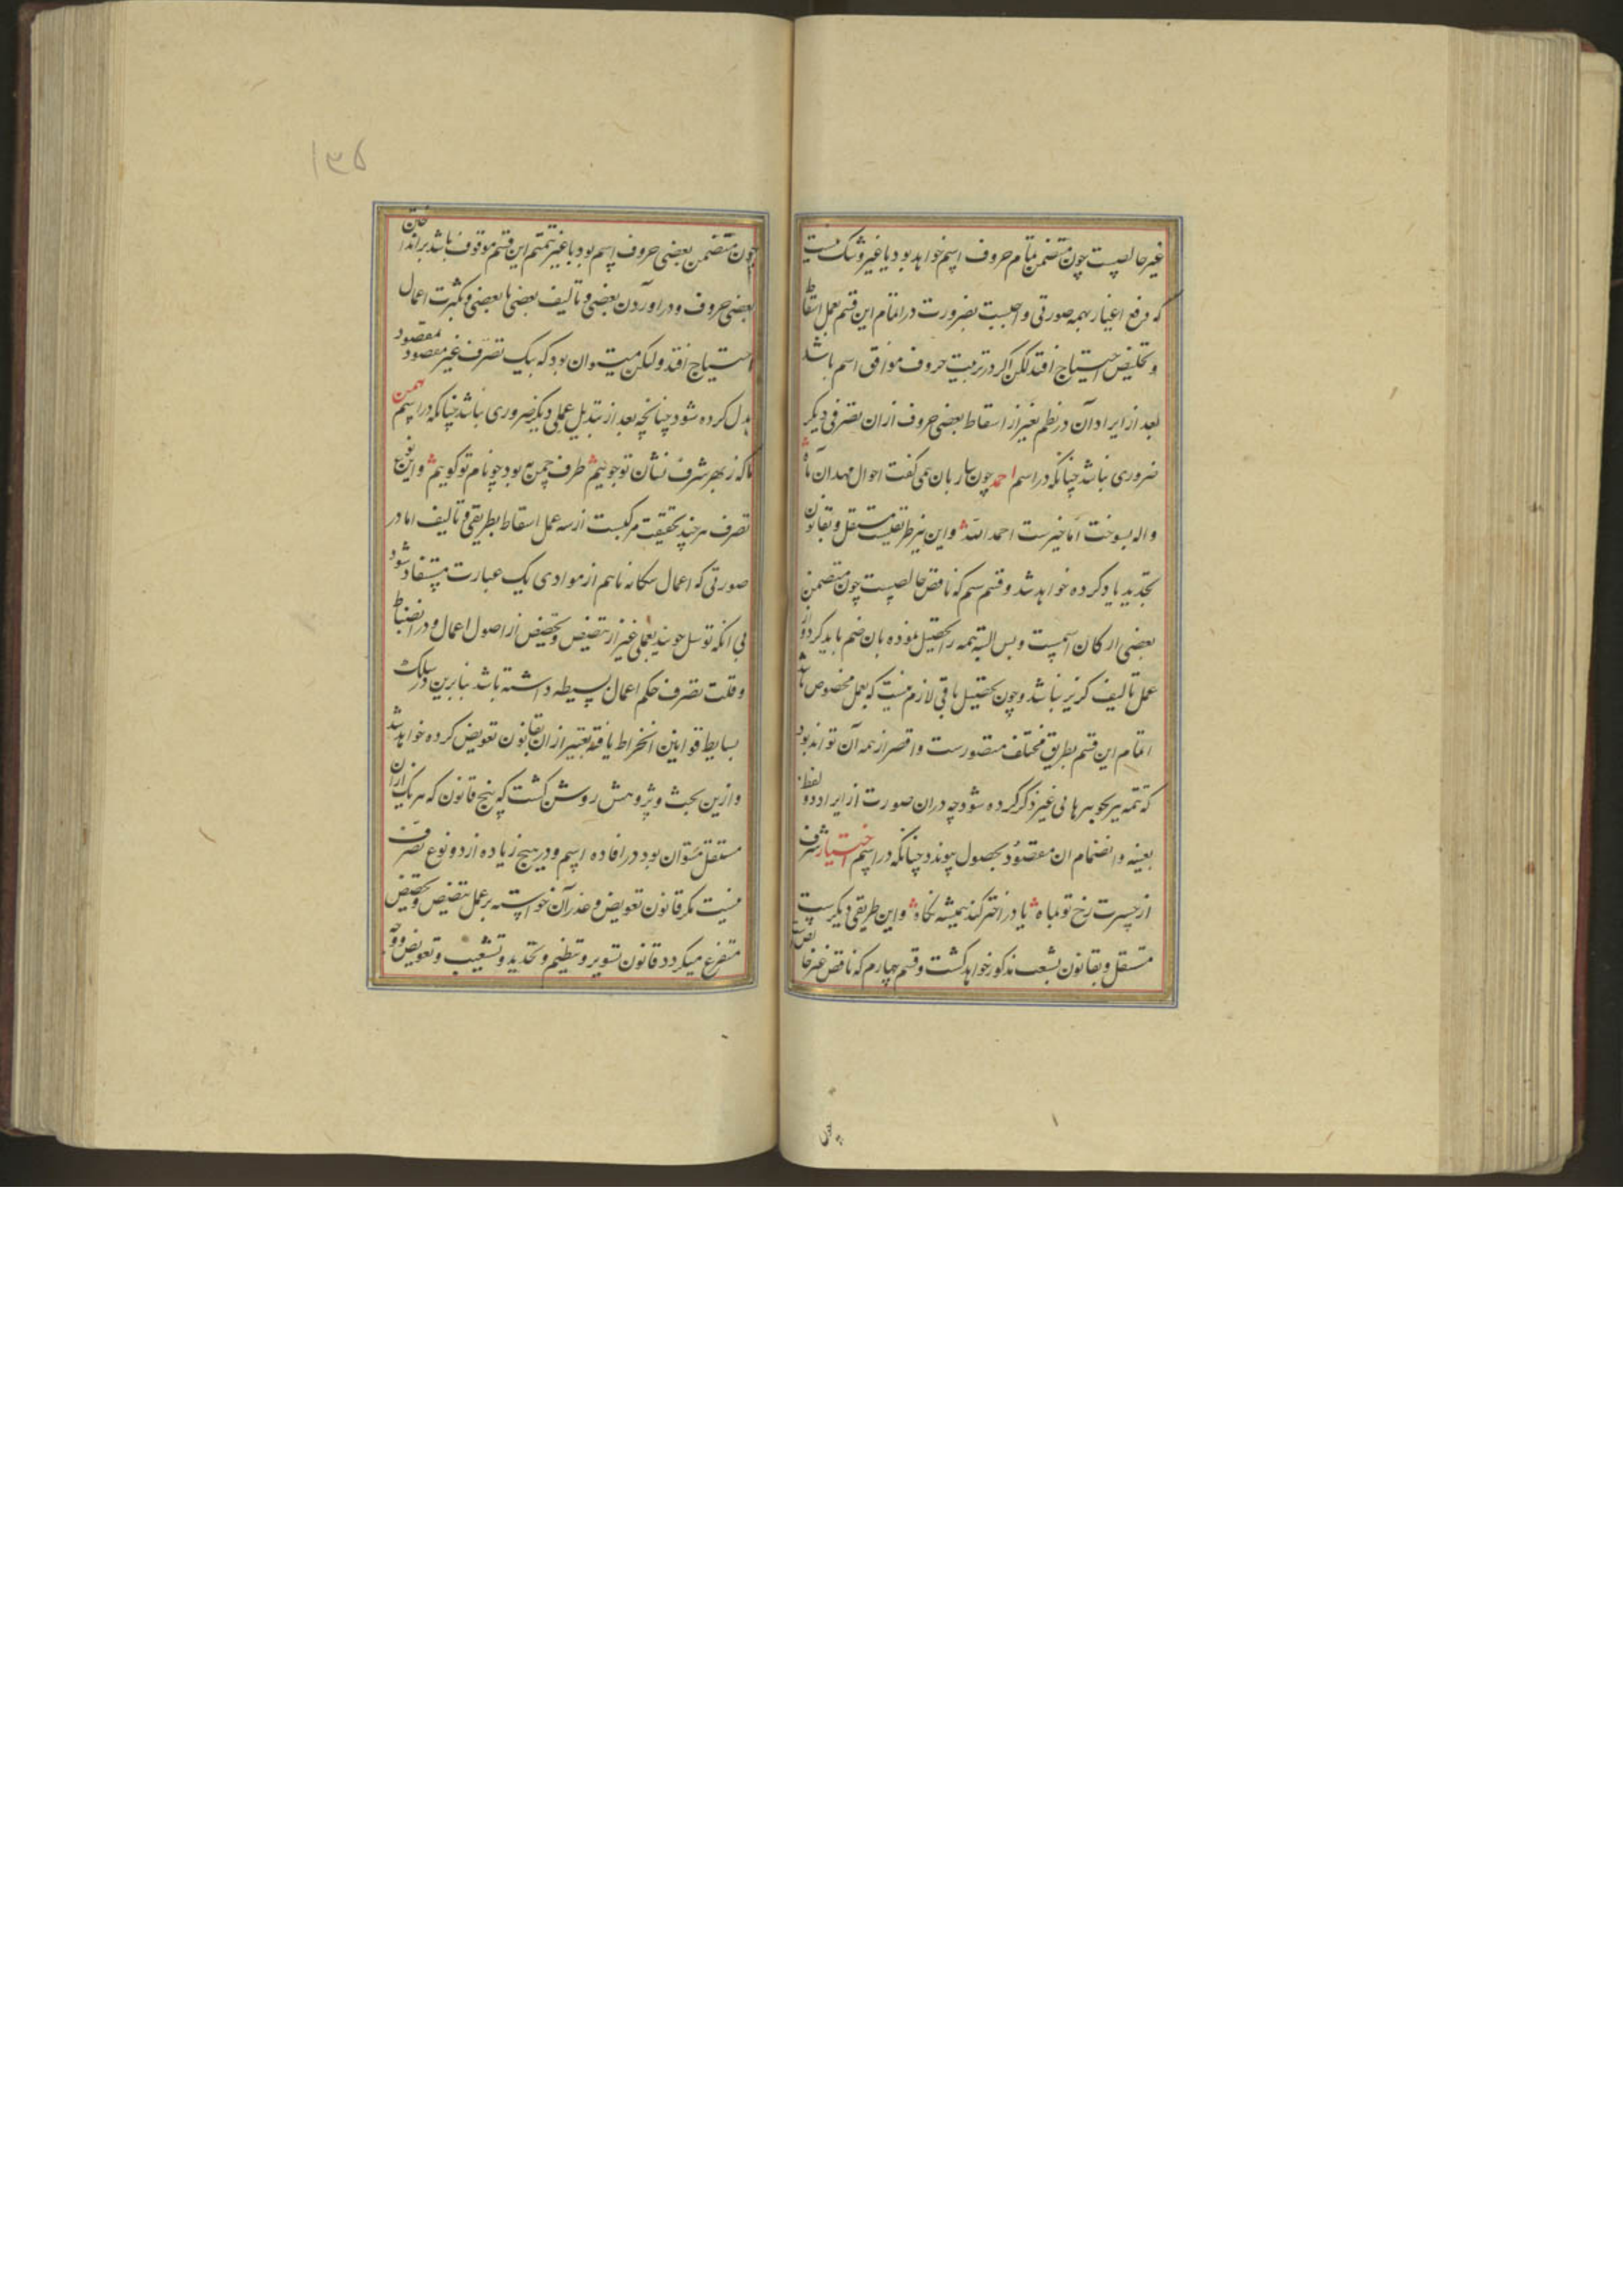 غیر خالصیست چون متضمن تمام حروف اسم خواهد بود با غیر و شک نیست
که دفع اغیار بهمه صورتی واجبست بضرورت در اتمام این قسم بعمل اسقاط
و تخلیص احتیاج افتد لکن اگر در ترتیب حروف موافق اسم باشد
بعد از ایراد آن در نظم بغیر از اسقاط بعضی حروف از ان تصرفی دیگر
ضروری نباشد چنانکه در اسم احمد چون ساربان همی گفت احوال مهد آن ماه
واله بسوخت اما خیرست احمد الله و این نیز طریقیست مستقل و بقانون
تحدید یاد کرده خواهد شد و قسم سیم که ناقص خالصیست چون متضمن
بعضی ارکان اسمیست و بس البته تتمه را تحصیل نموده بان ضم باید کرد و از
عمل تالیف گزیر نباشد و چون تحصیل باقی لازم نیست که بعمل مخصوص باشد
اتمام این قسم بطریق مختلف متصورست و اقصر از همه آن تواند بود
که تتمه نیز بجوهرها بی غیر ذکر کرده شود چه دران صورت از ایراد دو لفظ
بعینه و انضمام ان مقصود بحصول پیوندد چنانکه در اسم اختیار شرف
از حسرت رخ تو ماه یا در اختر کند همیشه نگاه و این طریقی دیگرست
مستقل و بقانون تشعیب مذکور خواهد گشت و قسم چهارم که ناقص غیر خالص
چون
۱۳۵
چون متضمن بعضی حروف اسم بود با غیر تتمیم این قسم موقوف باشد بر انداختن
بعضی حروف و در اوردن بعضی و تالیف بعضی با بعضی و بکثرت اعمال
احتیاج افتد ولیکن میتوان بود که بیک تصرف غیر مقصود بمقصود
بدل کرده شود چنانچه بعد از تبدیل عملی دیگر ضروری نباشد چنانکه در اسم بهمن
ما که ز بهر شرف نشان تو جوییم طرف چمن به بود چو نام تو گوییم و این نوع
تصرف هر چند بحقیقت مرکبست از سه عمل اسقاط بطریقی و تالیف اما در
صورتی که اعمال سکانه باهم از موادی یک عبارت مستفاد شود
بی انکه توسل جویند بعملی غیر از تنصیص و تخصیص از اصول اعمال و در انضباط
و قلت تصرف حکم اعمال بسیطه داشته باشد بنابرین در سلک
بسایط قوانین انخراط یافته تعبیر از ان بقانون تعویض کرده خواهد شد
و ازین بحث و پژوهش روشن گشت که پنج قانون که هر یک از ان
مستقل تتوان بود در افاده اسم و در هیچ زیاده از دو نوع تصرف
نیست مگر قانون تعویض و عذر آن خواسته بر عمل تنصیص و تخصیص
متفرع میگردد قانون تسویر و تنظیم و تحدید و تشعیب و تعویض و وجه